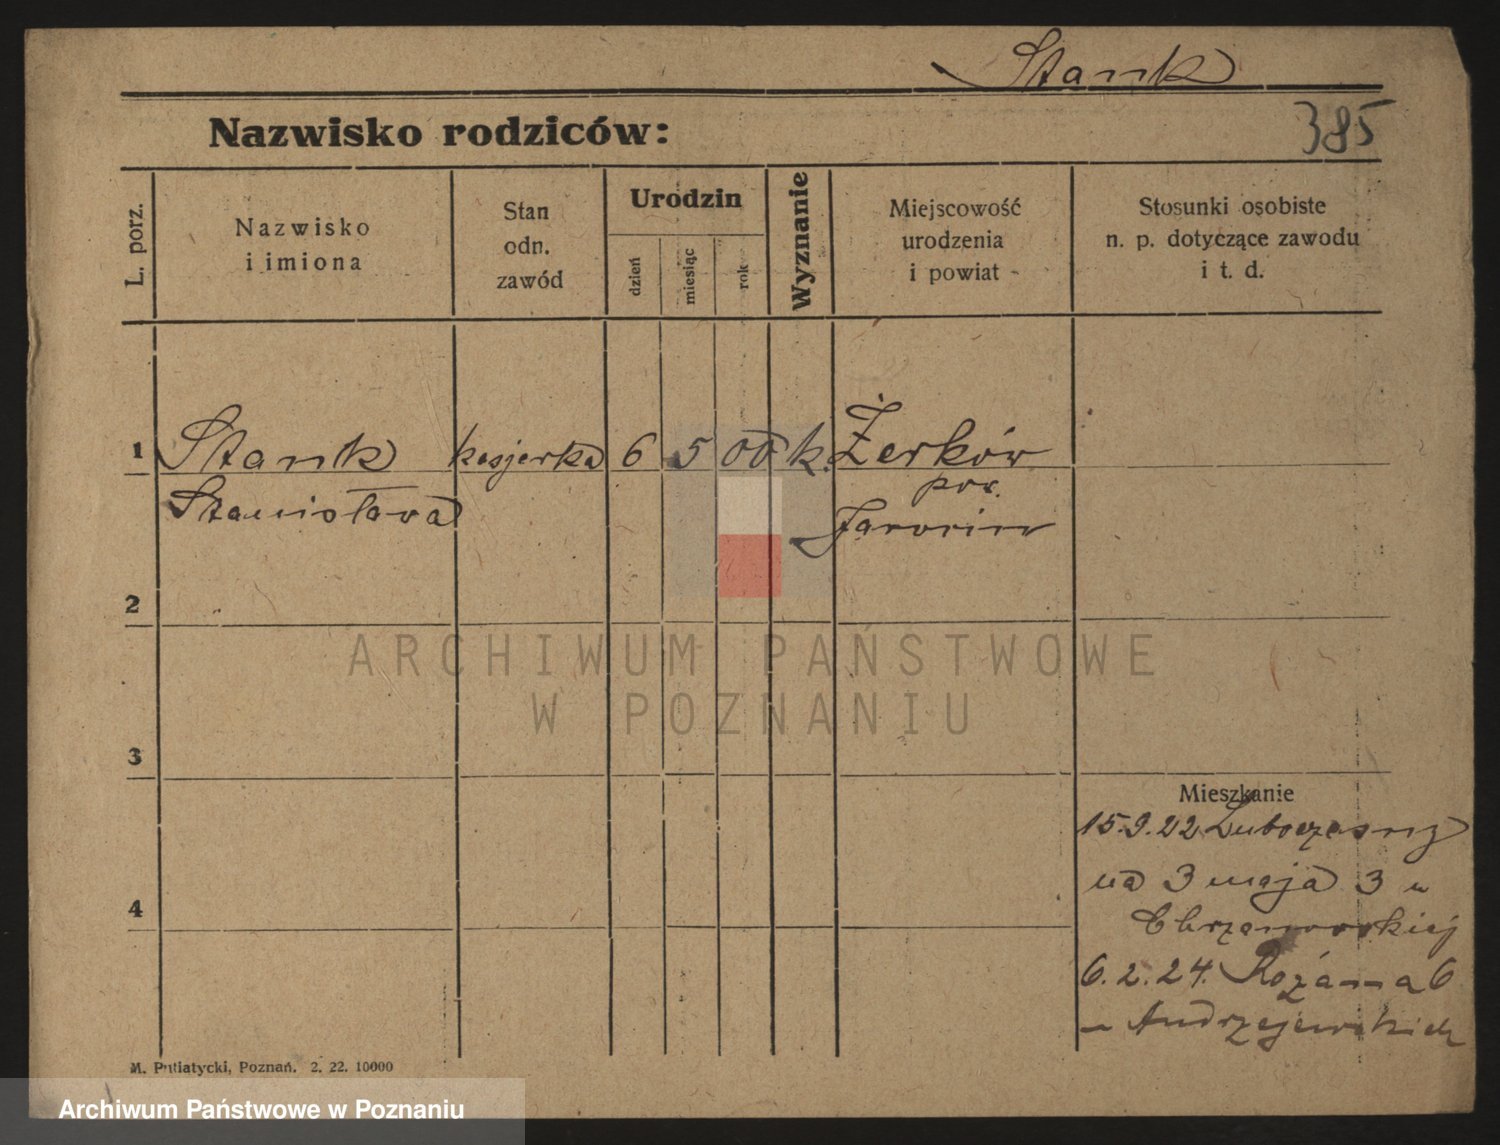 Stank
385
Nazwisko rodziców:
L. porz.
Nazwisko
i imiona
Stan
odn.
zawód
Urodzin
dzień
miesiąc
rok
Wyznanie
Miejscowość
urodzenia
i powiat
Stosunki osobiste
n. p. dotyczące zawodu
i t. d.
1 Stank kasjerka 6 5 00 k. Żerków
Stanisława
pow.
Jarocin
2
3
4
Mieszkanie
15.9.22
na 3 maja 3 u
Chrzanowskiej
6.2.24. Różana 6
u Andrzejewskich
M. Putiatycki, Poznań. 2. 22. 10000
ARCHIWUM PAŃSTWOWE
W POZNANIU
Archiwum Państwowe w Poznaniu